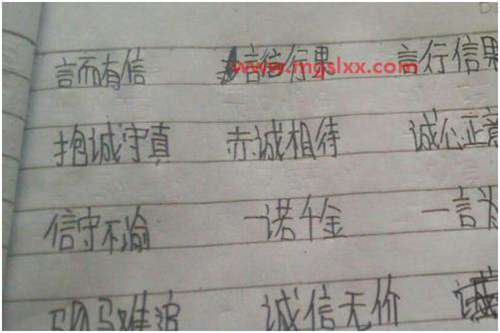 言而有信 言信行果 言行信果
www.mgslxx.com
抱诚守真 赤诚相待 诚心正意
信守不渝 一诺千金 一言为
驷马难追 诚信无价 诚